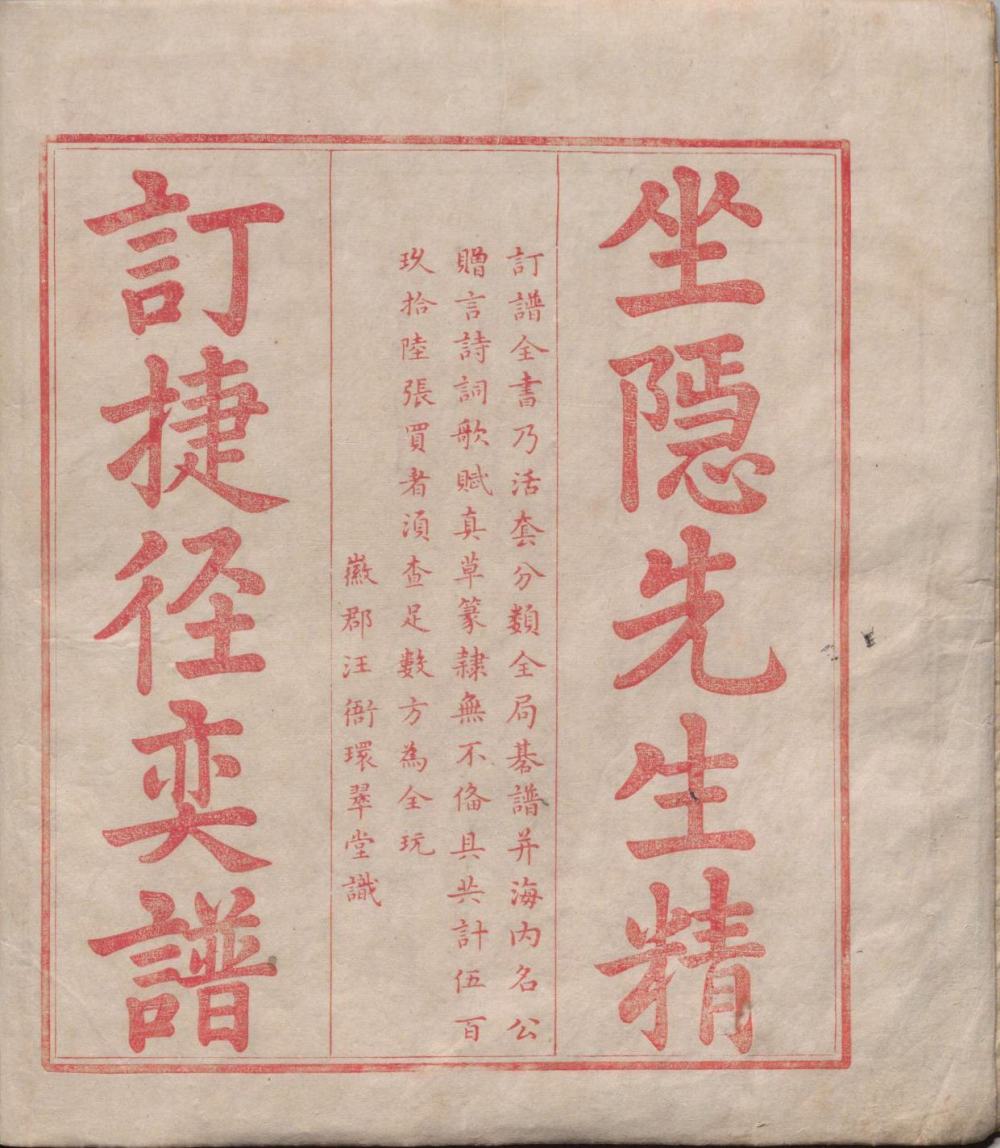 坐隱先生精
訂譜全書乃活套分類全局碁譜并海内名公
贈言詩詞歌賦真草篆隸無不俻具共計伍百
玖拾陸張買者須查足數方為全玩
徽郡汪衙環翠堂識
訂捷径奕譜